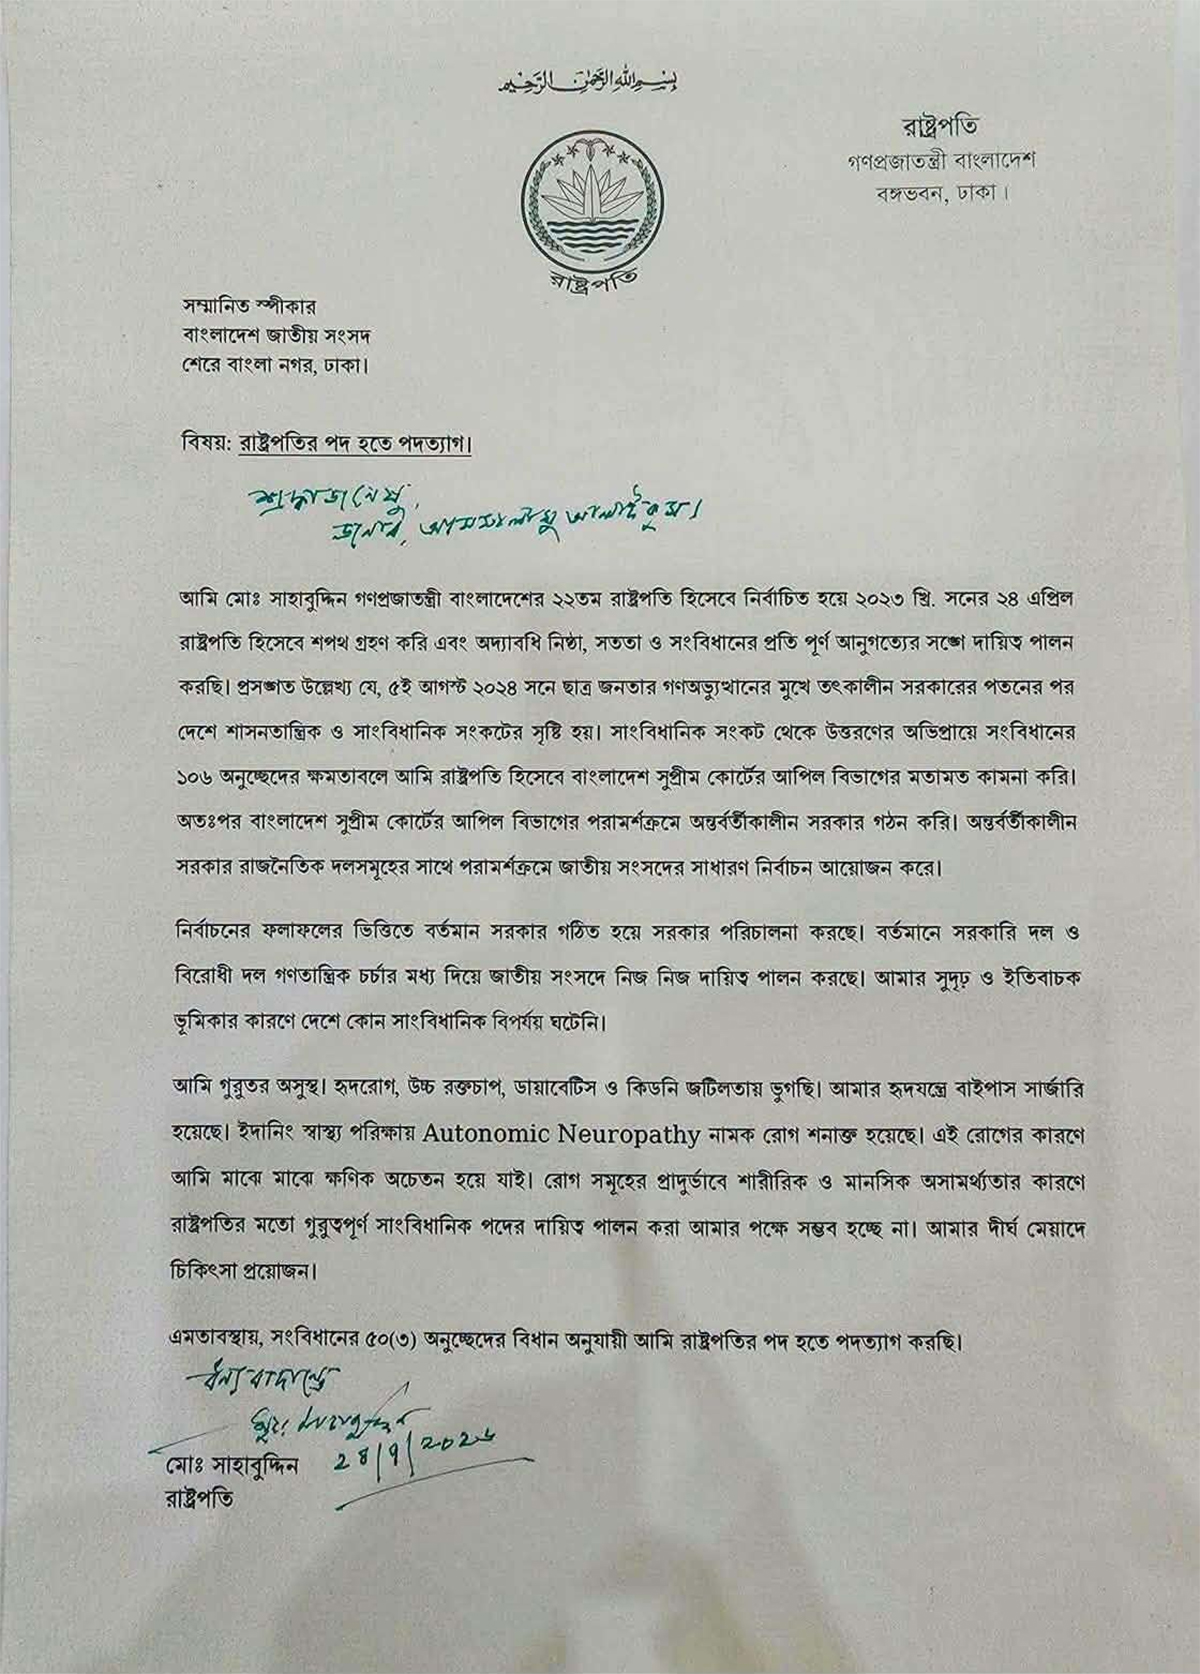 بسم الله الرحمن الرحيم
রাষ্ট্রপতি
গণপ্রজাতন্ত্রী বাংলাদেশ
বঙ্গভবন, ঢাকা।
রাষ্ট্রপতি
সম্মানিত স্পীকার
বাংলাদেশ জাতীয় সংসদ
শেরে বাংলা নগর, ঢাকা।
বিষয়: রাষ্ট্রপতির পদ হতে পদত্যাগ।
শ্রদ্ধাভাজনেষু,
জনাব, আসসালামু আলাইকুম।
আমি মোঃ সাহাবুদ্দিন গণপ্রজাতন্ত্রী বাংলাদেশের ২২তম রাষ্ট্রপতি হিসেবে নির্বাচিত হয়ে ২০২৩ খ্রি. সনের ২৪ এপ্রিল
রাষ্ট্রপতি হিসেবে শপথ গ্রহণ করি এবং অদ্যাবধি নিষ্ঠা, সততা ও সংবিধানের প্রতি পূর্ণ আনুগত্যের সঙ্গে দায়িত্ব পালন
করছি। প্রসঙ্গত উল্লেখ্য যে, ৫ই আগস্ট ২০২৪ সনে ছাত্র জনতার গণঅভ্যুত্থানের মুখে তৎকালীন সরকারের পতনের পর
দেশে শাসনতান্ত্রিক ও সাংবিধানিক সংকটের সৃষ্টি হয়। সাংবিধানিক সংকট থেকে উত্তরণের অভিপ্রায়ে সংবিধানের
১০৬ অনুচ্ছেদের ক্ষমতাবলে আমি রাষ্ট্রপতি হিসেবে বাংলাদেশ সুপ্রীম কোর্টের আপিল বিভাগের মতামত কামনা করি।
অতঃপর বাংলাদেশ সুপ্রীম কোর্টের আপিল বিভাগের পরামর্শক্রমে অন্তর্বর্তীকালীন সরকার গঠন করি। অন্তর্বর্তীকালীন
সরকার রাজনৈতিক দলসমূহের সাথে পরামর্শক্রমে জাতীয় সংসদের সাধারণ নির্বাচন আয়োজন করে।
নির্বাচনের ফলাফলের ভিত্তিতে বর্তমান সরকার গঠিত হয়ে সরকার পরিচালনা করছে। বর্তমানে সরকারি দল ও
বিরোধী দল গণতান্ত্রিক চর্চার মধ্য দিয়ে জাতীয় সংসদে নিজ নিজ দায়িত্ব পালন করছে। আমার সুদৃঢ় ও ইতিবাচক
ভূমিকার কারণে দেশে কোন সাংবিধানিক বিপর্যয় ঘটেনি।
আমি গুরুতর অসুস্থ। হৃদরোগ, উচ্চ রক্তচাপ, ডায়াবেটিস ও কিডনি জটিলতায় ভুগছি। আমার হৃদযন্ত্রে বাইপাস সার্জারি
হয়েছে। ইদানিং স্বাস্থ্য পরিক্ষায় Autonomic Neuropathy নামক রোগ শনাক্ত হয়েছে। এই রোগের কারণে
আমি মাঝে মাঝে ক্ষণিক অচেতন হয়ে যাই। রোগ সমূহের প্রাদুর্ভাবে শারীরিক ও মানসিক অসামর্থ্যতার কারণে
রাষ্ট্রপতির মতো গুরুত্বপূর্ণ সাংবিধানিক পদের দায়িত্ব পালন করা আমার পক্ষে সম্ভব হচ্ছে না। আমার দীর্ঘ মেয়াদে
চিকিৎসা প্রয়োজন।
এমতাবস্থায়, সংবিধানের ৫০(৩) অনুচ্ছেদের বিধান অনুযায়ী আমি রাষ্ট্রপতির পদ হতে পদত্যাগ করছি।
ধন্যবাদান্তে
মোঃ সাহাবুদ্দিন ২৪/৭/২০২৬
রাষ্ট্রপতি